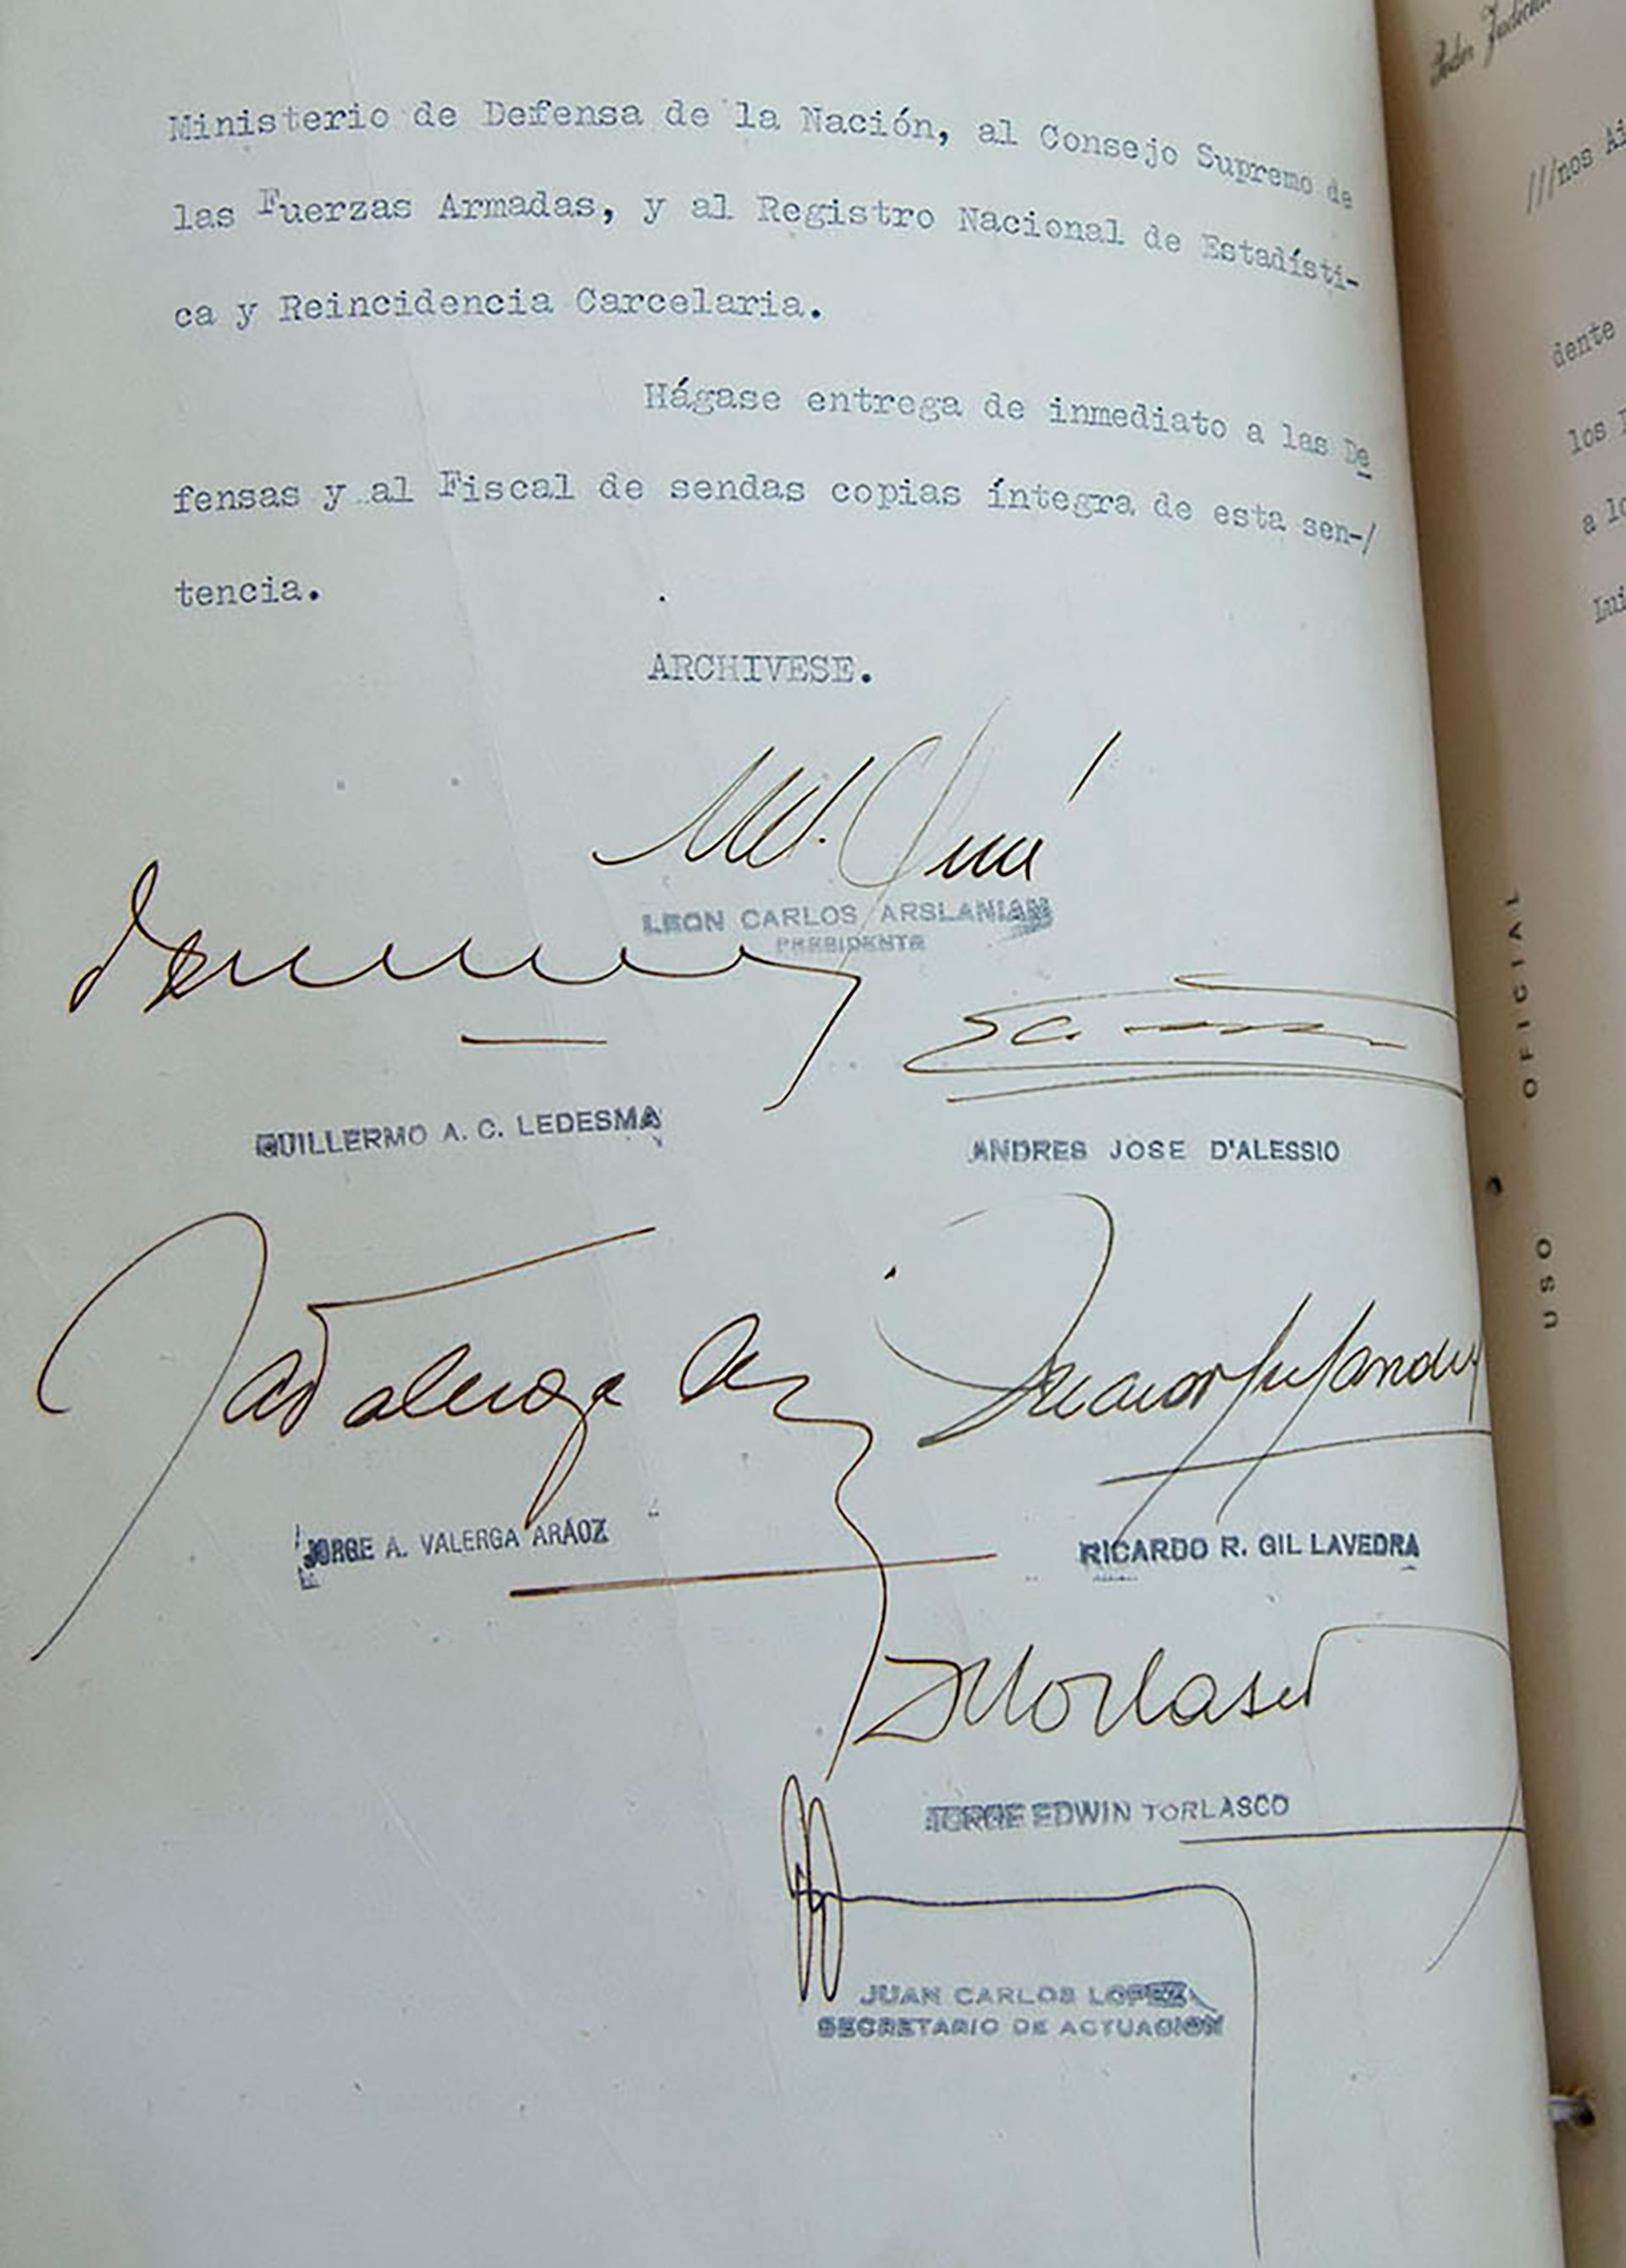 Ministerio de Defensa de la Nación, al Consejo Supremo de
las Fuerzas Armadas, y al Registro Nacional de Estadísti-
ca y Reincidencia Carcelaria.
Hágase entrega de inmediato a las De
fensas y al Fiscal de sendas copias íntegra de esta sen-/
tencia.
ARCHIVESE.
LEON CARLOS ARSLANIAN
PRESIDENTE
GUILLERMO A. C. LEDESMA
ANDRES JOSE D'ALESSIO
JORGE A. VALERGA ARÁOZ
RICARDO R. GIL LAVEDRA
JORGE EDWIN TORLASCO
JUAN CARLOS LOPEZ
SECRETARIO DE ACTUACION
USO OFICIAL
Poder
///nos
dente
los
a